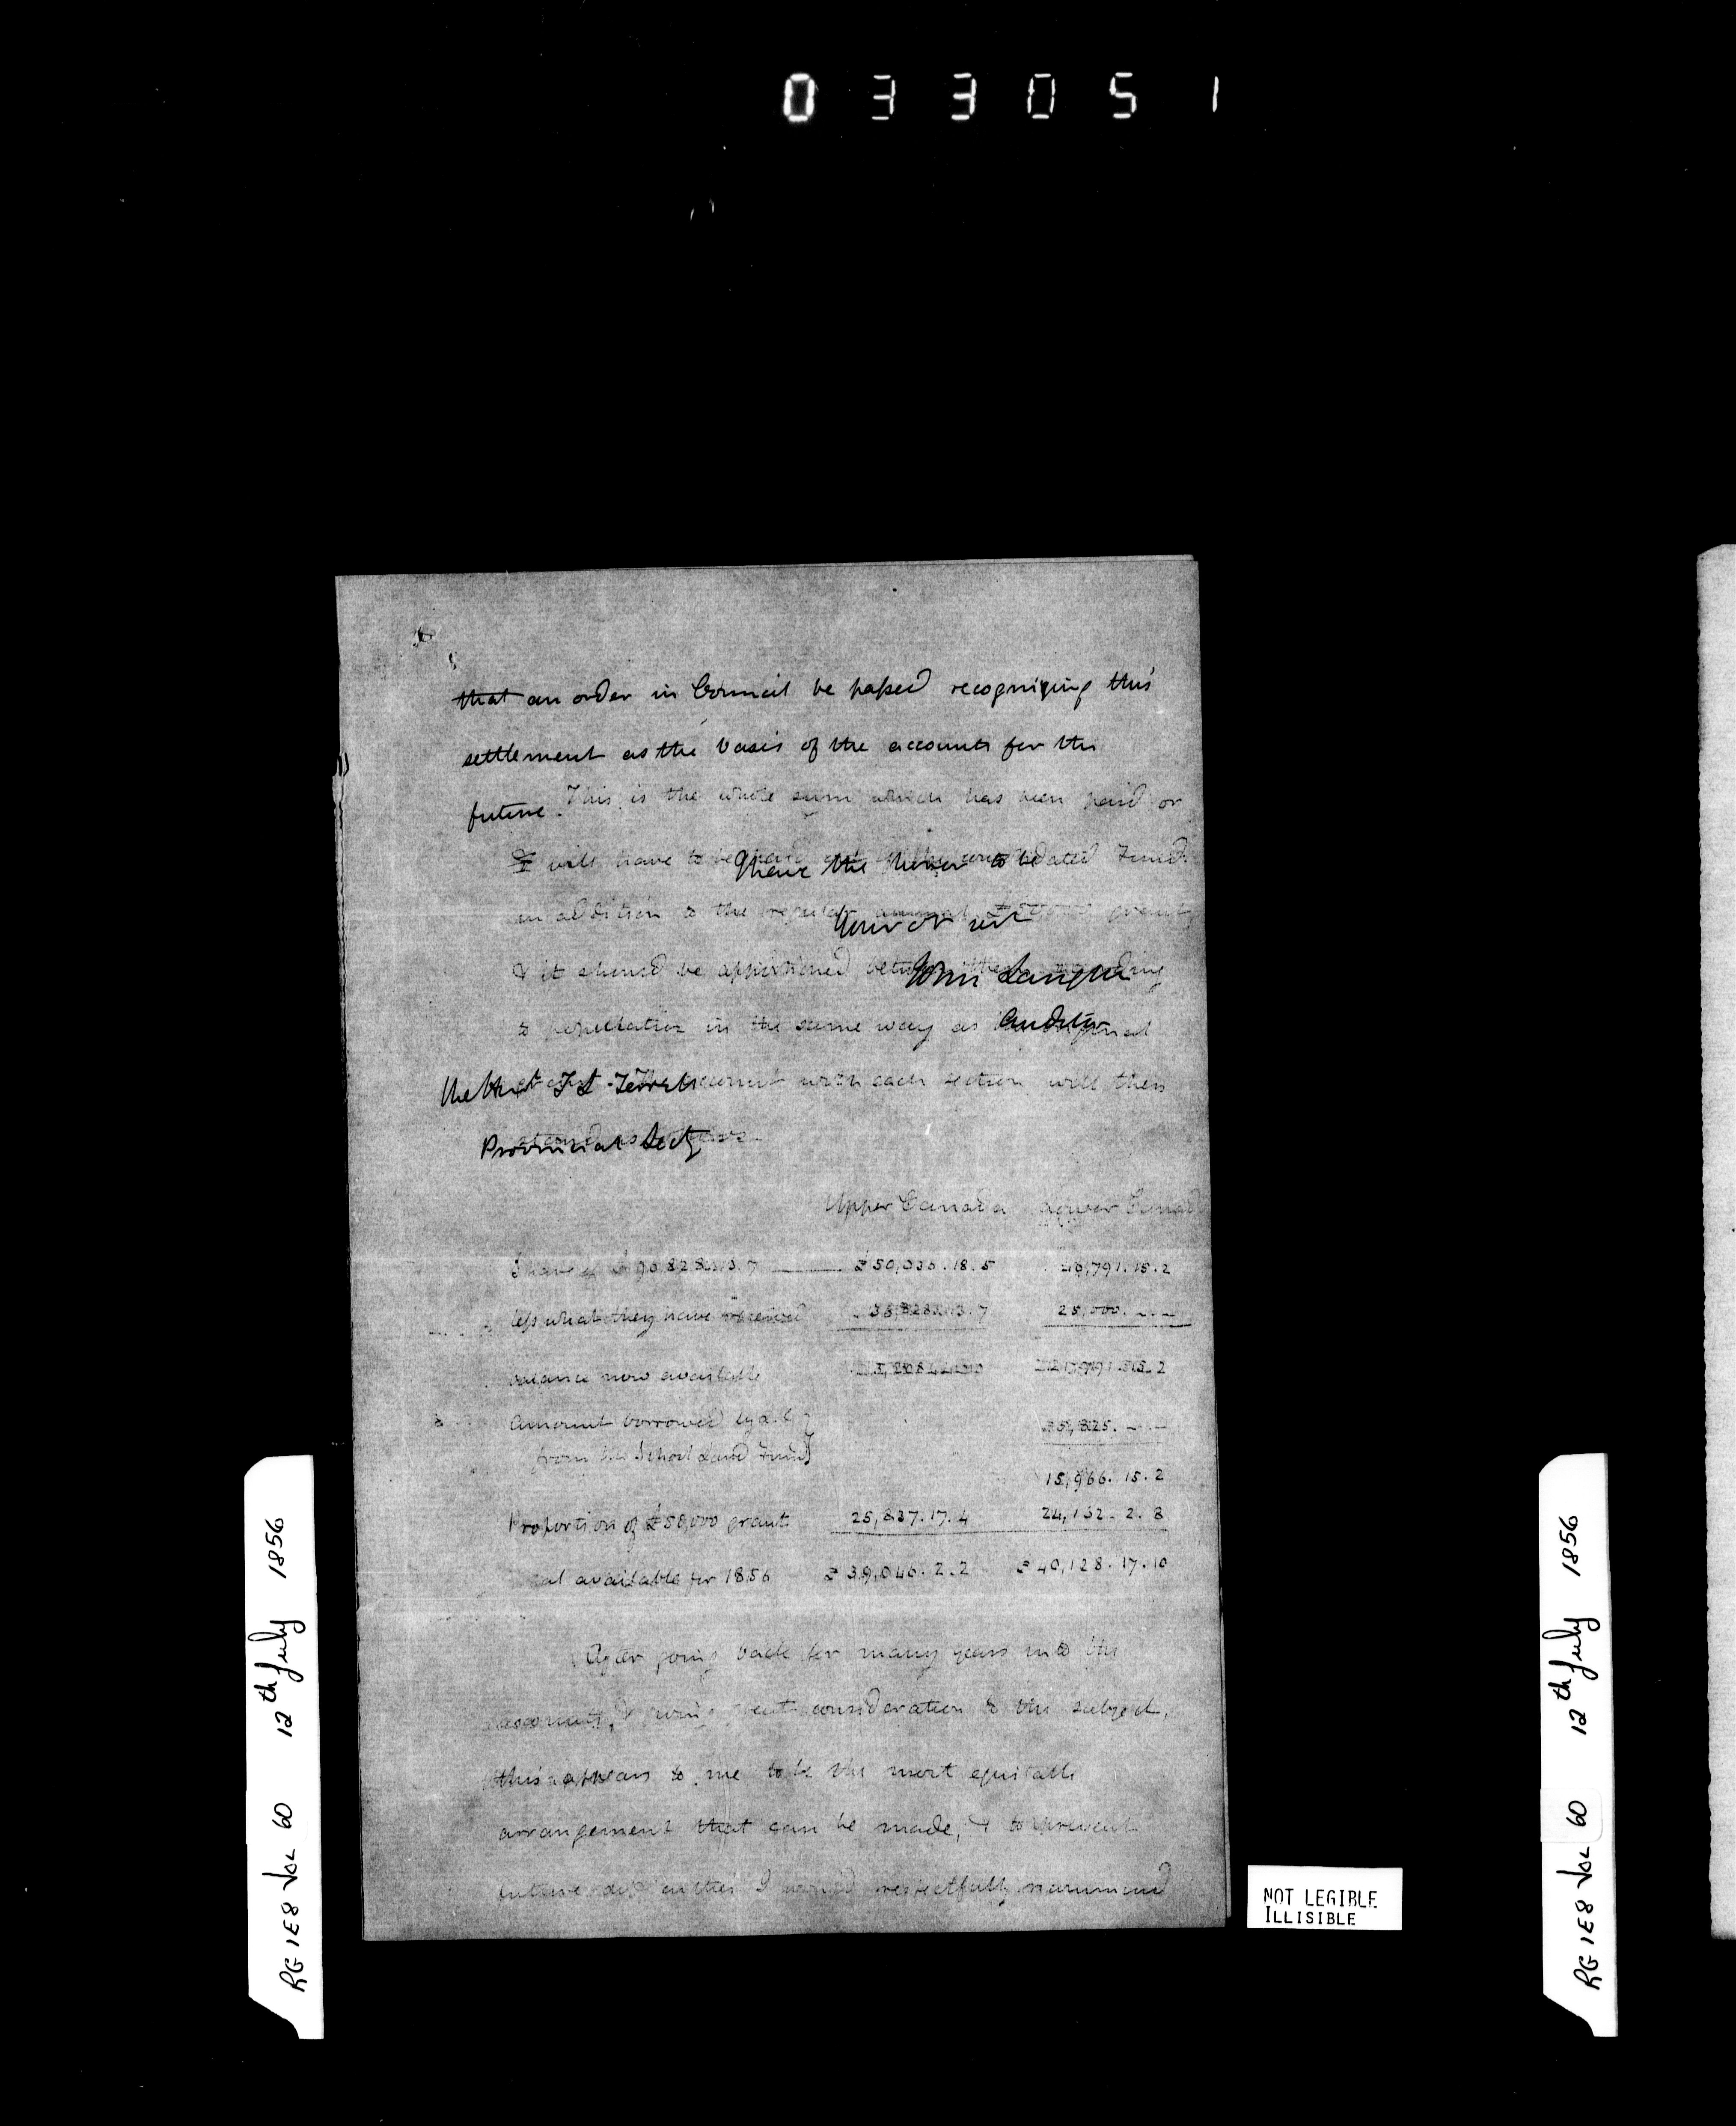 033051
that an order in Council be passed recognizing this
settlement as the basis of the accounts for the
future.
This is the whole sum which has been paid or
will have to be
dated Fund
I have the honor to be
in addition to the regular annual grant,
Your ob sert
& it should be apportioned
John Langton
to population in the same way as
Auditor
The Hon
Terrill
account with each section will then
Provincial Secty
Upper Canada Lower Canad
Share of £ 90,828.13.7 £50,036.18.5 40,791.15.2
less what they have received 36,828.13.7 25,000. - -
Balance now available
Amount borrowed by L.C
from the School Land Fund
15,966.15.2
Proportion of £50,000 grant 25,837.17.4 24,162.2.8
available for 1856 £39,046.2.2 £40,128.17.10
After going back for many years into the
accounts, & giving great consideration to the subject,
this appears to me to be the most equitable
arrangement that can be made, & to prevent
future I would respectfully recommend
RG 1E8 Vol 60 12th July 1856
NOT LEGIBLE
ILLISIBLE
RG 1E8 Vol 60 12th July 1856